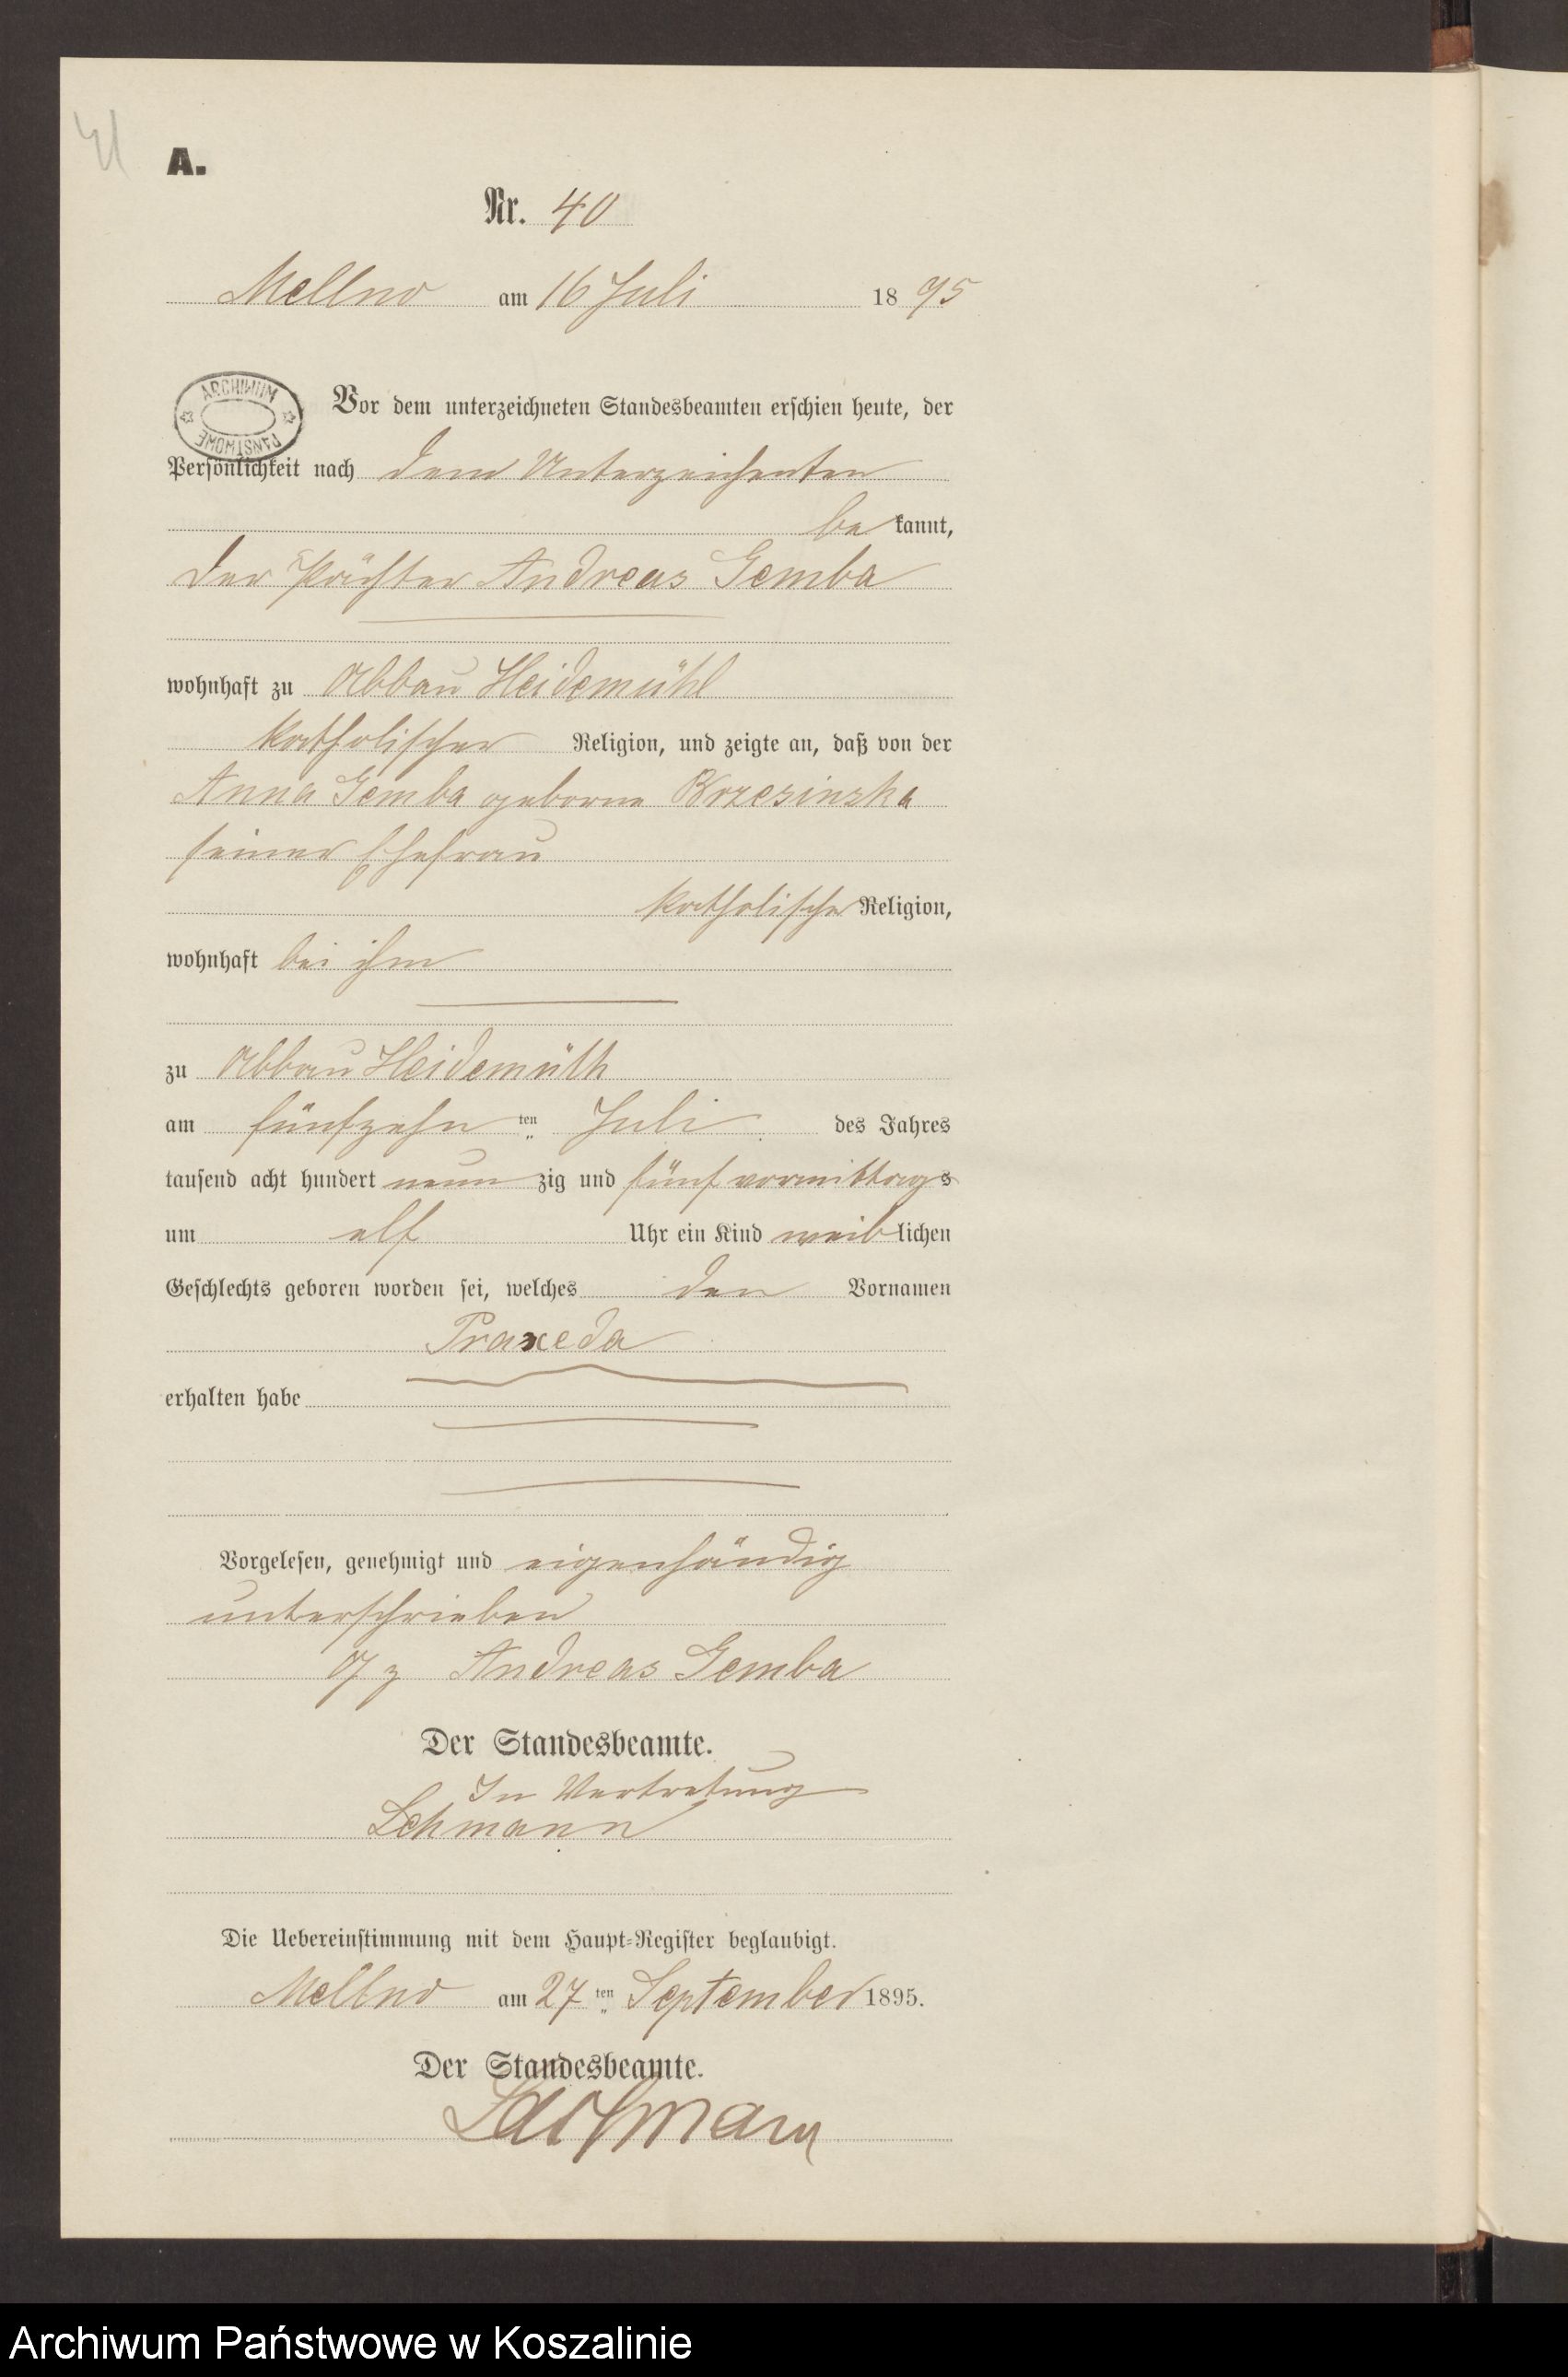 41
A.
Nr. 40
Mellno am 16 Juli 1895
ARCHIWUM PAŃSTWOWE
Vor dem unterzeichneten Standesbeamten erschien heute, der
Persönlichkeit nach dem Unterzeichneten
be kannt,
der Pächter Andreas Gemba
wohnhaft zu Abbau Heidemühl
katholischer Religion, und zeigte an, daß von der
Anna Gemba geborne Brzesinska
seiner Ehefrau
katholischer Religion,
wohnhaft bei ihm
zu Abbau Heidemühl
am fünfzehn ten Juli des Jahres
tausend acht hundert neun zig und fünf vormittags
um elf Uhr ein Kind weiblichen
Geschlechts geboren worden sei, welches den Vornamen
Praxeda
erhalten habe
Vorgelesen, genehmigt und eigenhändig
unterschrieben
gz Andreas Gemba
Der Standesbeamte.
In Vertretung
Lehmann
Die Uebereinstimmung mit dem Haupt-Register beglaubigt.
Mellno am 27 ten September 1895.
Der Standesbeamte.
Archiwum Państwowe w Koszalinie